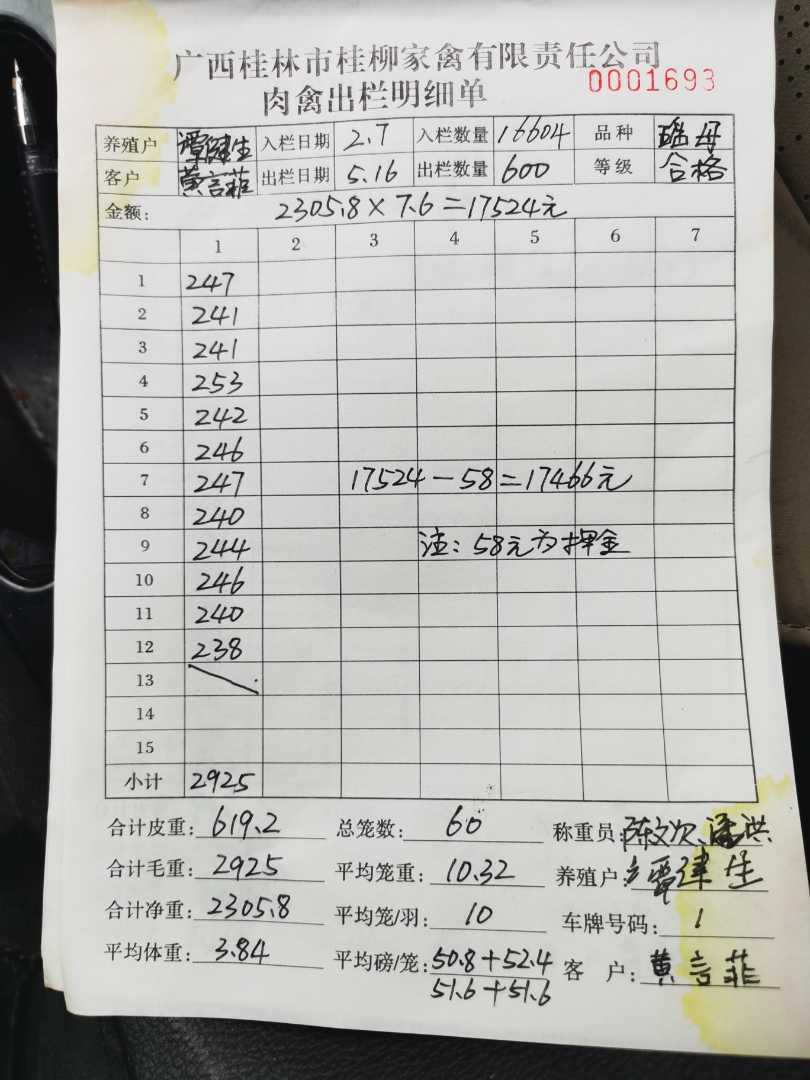 广西桂林市桂柳家禽有限责任公司
肉禽出栏明细单 0001693
养殖户 谭健生 入栏日期 2.7 入栏数量 16604 品种 瑶母
客户 黄言菲 出栏日期 5.16 出栏数量 600 等级 合格
金额: 2305.8×7.6=17524元
1 2 3 4 5 6 7
1 247
2 241
3 241
4 253
5 242
6 246
7 247 17524-58=17466元
8 240
9 244 注:58元为押金
10 246
11 240
12 238
13
14
15
小计 2925
合计皮重: 619.2 总笼数: 60 称重员:
合计毛重: 2925 平均笼重: 10.32 养殖户: 谭健生
合计净重: 2305.8 平均笼/羽: 10 车牌号码: 1
平均体重: 3.84 平均磅/笼: 50.8+52.4 客户: 黄言菲
51.6+51.6